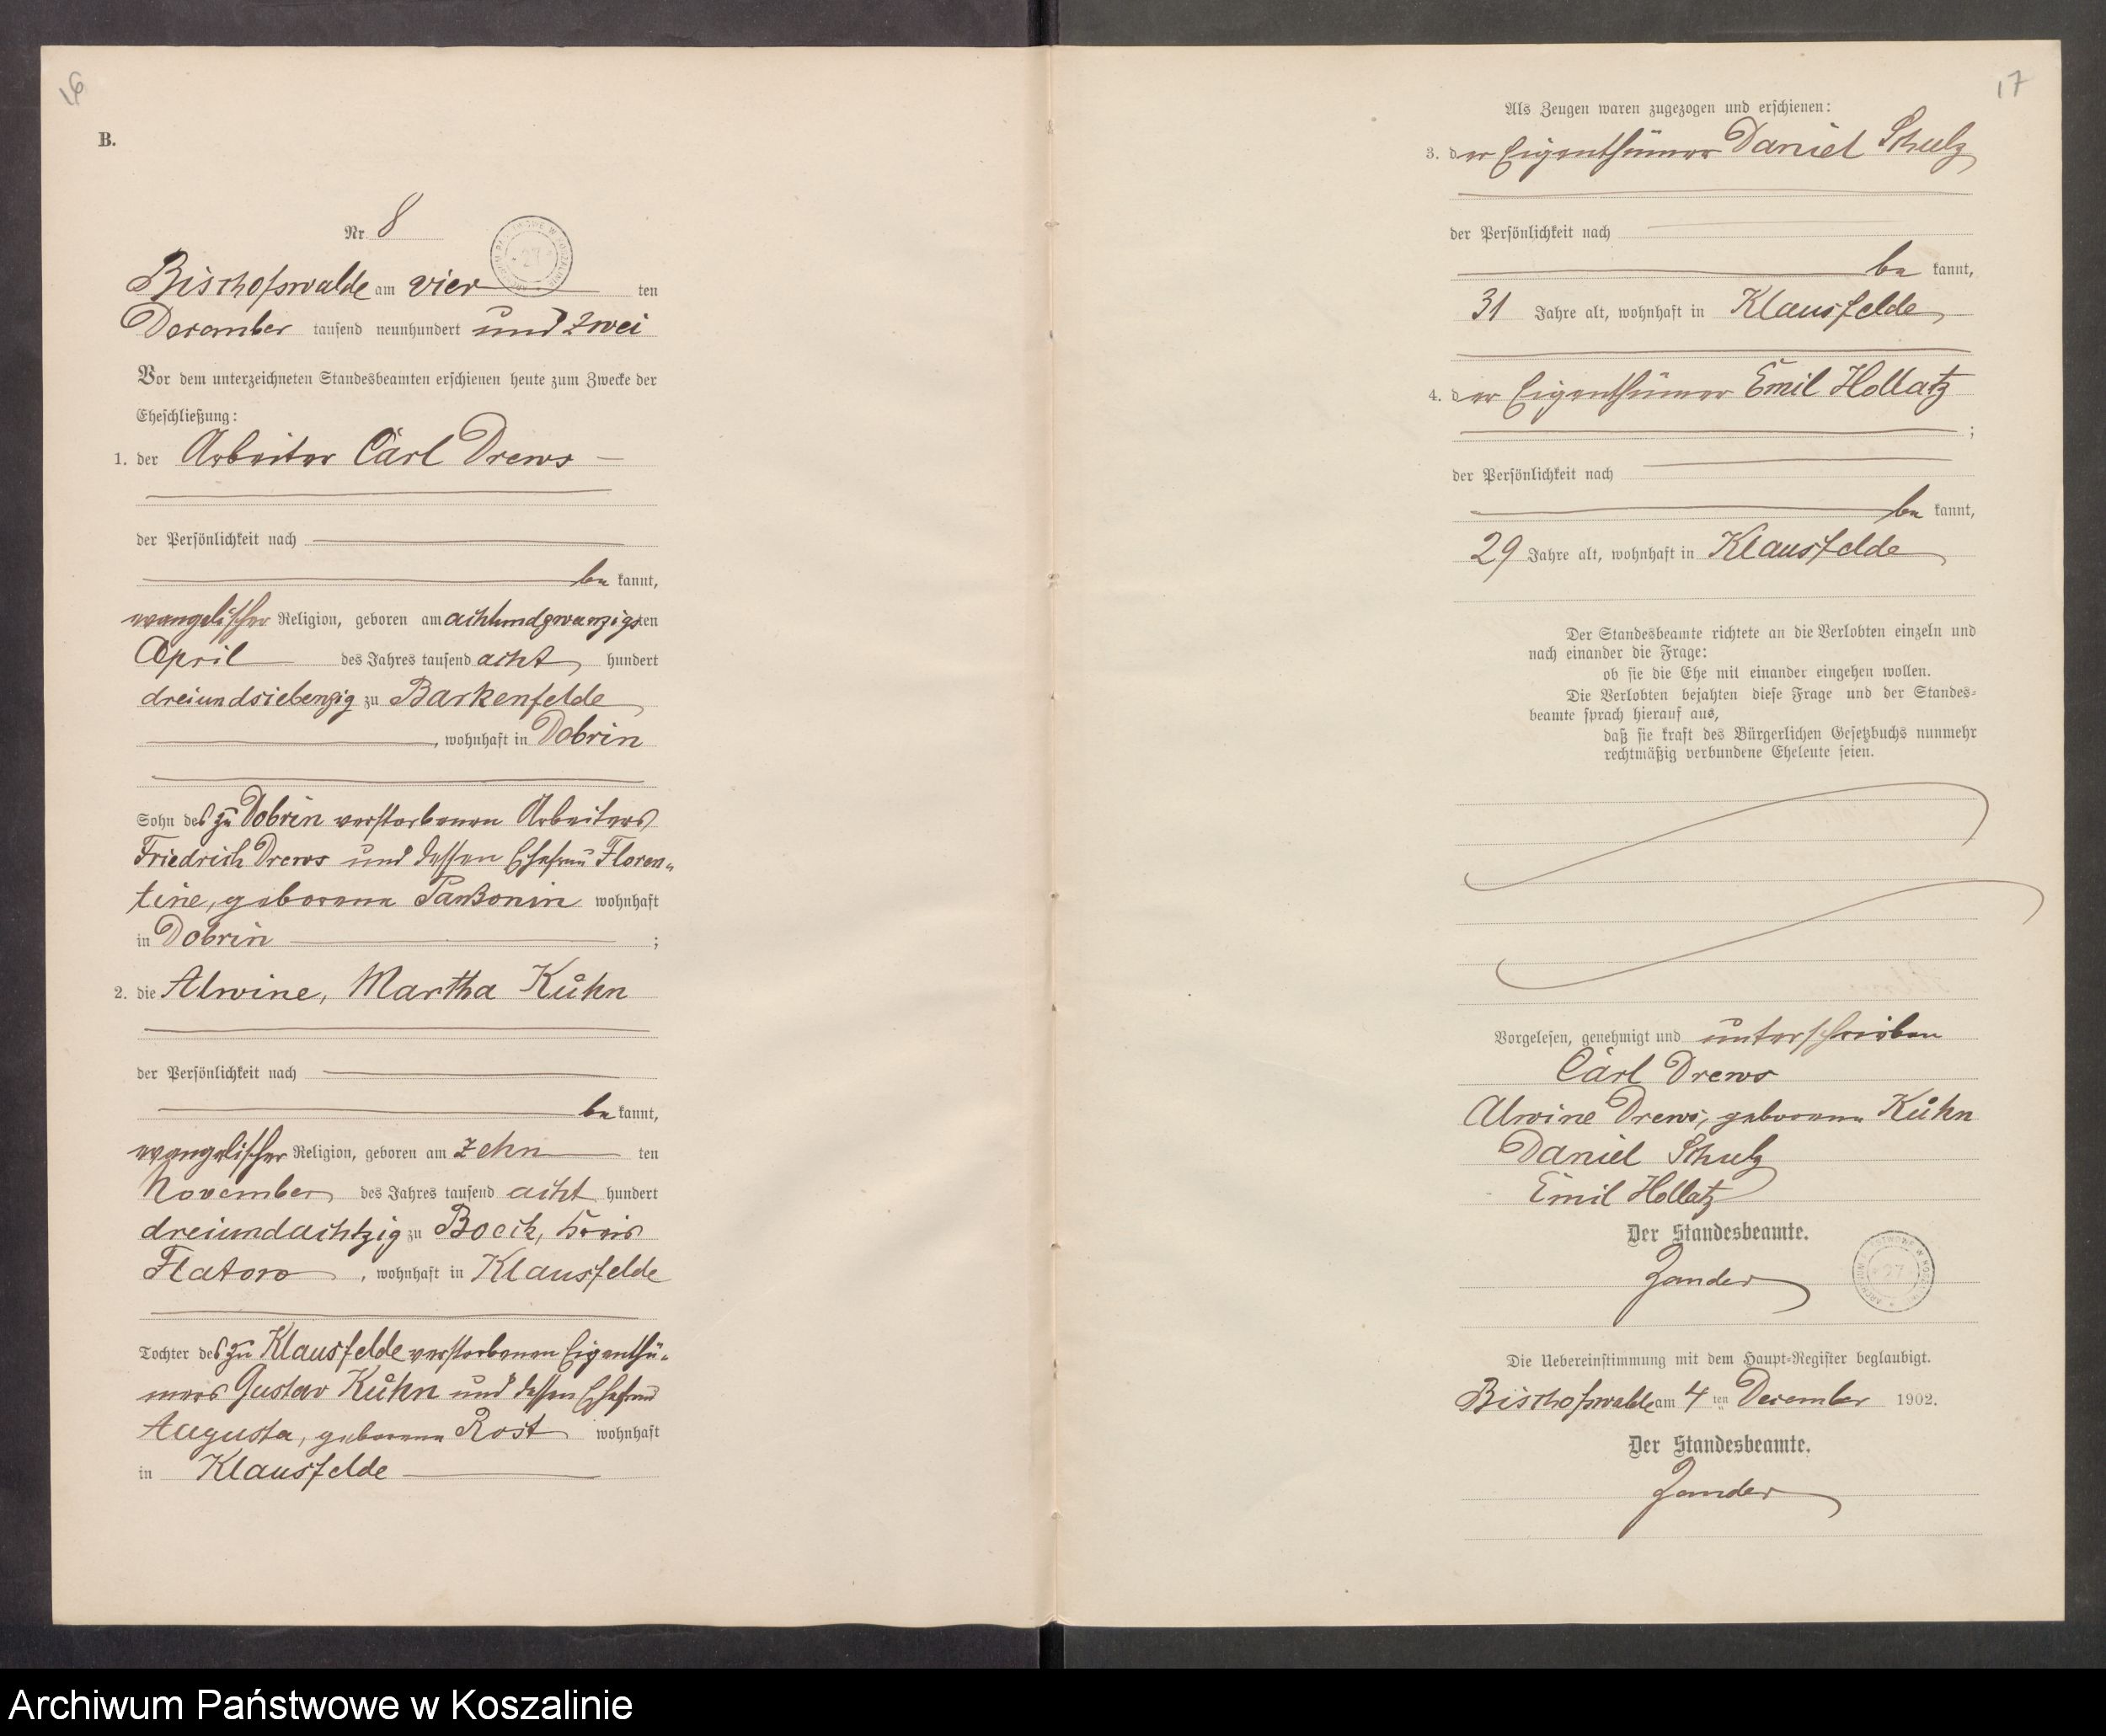 16
B.
Nr. 8
Bischofswalde am vier ten
December tausend neunhundert und zwei
Vor dem unterzeichneten Standesbeamten erschienen heute zum Zwecke der
Eheschließung:
1. der Arbeiter Carl Drews
der Persönlichkeit nach
be kannt,
evangelischer Religion, geboren am achtundzwanzigsten
April des Jahres tausend acht hundert
dreiundsiebenzig zu Barkenfelde
, wohnhaft in Dobrin
Sohn des zu Dobrin verstorbenen Arbeiters
Friedrich Drews und dessen Ehefrau Floren-
tine, geborene wohnhaft
in Dobrin ;
2. die Alwine, Martha Kühn
der Persönlichkeit nach
be kannt,
evangelischer Religion, geboren am zehn ten
November des Jahres tausend acht hundert
dreiundachtzig zu Boeck, Kreis
Flatow, wohnhaft in Klausfelde
Tochter des zu Klausfelde verstorbenen Eigenthü-
mers Gustav Kühn und dessen Ehefrau
Augusta, geborene Rost wohnhaft
in Klausfelde
17
Als Zeugen waren zugezogen und erschienen:
3. der Eigenthümer Daniel Schulz
der Persönlichkeit nach
be kannt,
31 Jahre alt, wohnhaft in Klausfelde
4. der Eigenthümer Emil Hollatz
;
der Persönlichkeit nach
be kannt,
29 Jahre alt, wohnhaft in Klausfelde
Der Standesbeamte richtete an die Verlobten einzeln und
nach einander die Frage:
ob sie die Ehe mit einander eingehen wollen.
Die Verlobten bejahten diese Frage und der Standes-
beamte sprach hierauf aus,
daß sie kraft des Bürgerlichen Gesetzbuchs nunmehr
rechtmäßig verbundene Eheleute seien.
Vorgelesen, genehmigt und unterschrieben
Carl Drews
Alwine Drews, geborene Kühn
Daniel Schulz
Emil Hollatz
Der Standesbeamte.
Zander
Die Uebereinstimmung mit dem Haupt-Register beglaubigt.
Bischofswalde am 4 ten December 1902.
Der Standesbeamte.
Zander
Archiwum Państwowe w Koszalinie